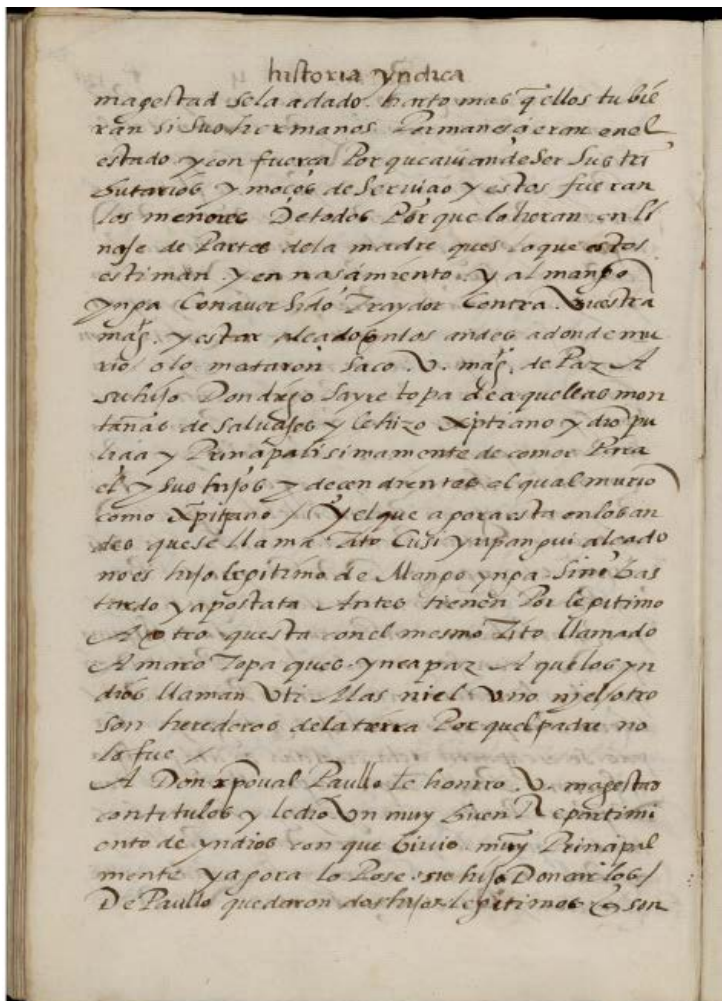 historia yndica
magestad se la a dado. harto mas q̃ ellos tubie
ran si sus hermanos Permanesçieran en el
estado y con fuerça Por que auian de Ser Sus tri
butarios y moços de Seruiçio y estos fueran
los menores De todos Por que lo heran en li
naje de Partes de la madre ques lo que estos
estiman y en nasçimiento. y al mango
ynga Con auer Sido Traydor Contra Vuestra
mag. y estar alçado en los andes a donde mu
rio o lo mataron Saco .V. mag. de Paz A
su hijo Don diego Sayre topa de aquellas mon
tañas de Saluajes y le hizo xp̃tiano y dio pu
liçia y Prinçipalisimamente de comer Para
el y sus hijos y decendientes el qual murio
como xp̃itano / Y el que agora esta en los an
des que se llama Tito Cusi yupangui alçado
no es hijo legitimo de Mango ynga Sino bas
tardo y apostata Antes tienen Por legitimo
A otro questa con el mesmo Tito llamado
Amaro Topa ques yncapaz A que los yn
dios llaman Vti Mas ni el Vno ni el otro
son herederos de la tierra Por quel padre no
lo fue /
A Don xpoual Paullo le honrro .V. magestad
con titulos y le dio Vn muy buen Repartimi
ento de yndios con que biuio muy Prinçipal
mente y agora lo Pose su hijo Don carlos /
De Paullo quedaron dos hijos legitimos q̃ son